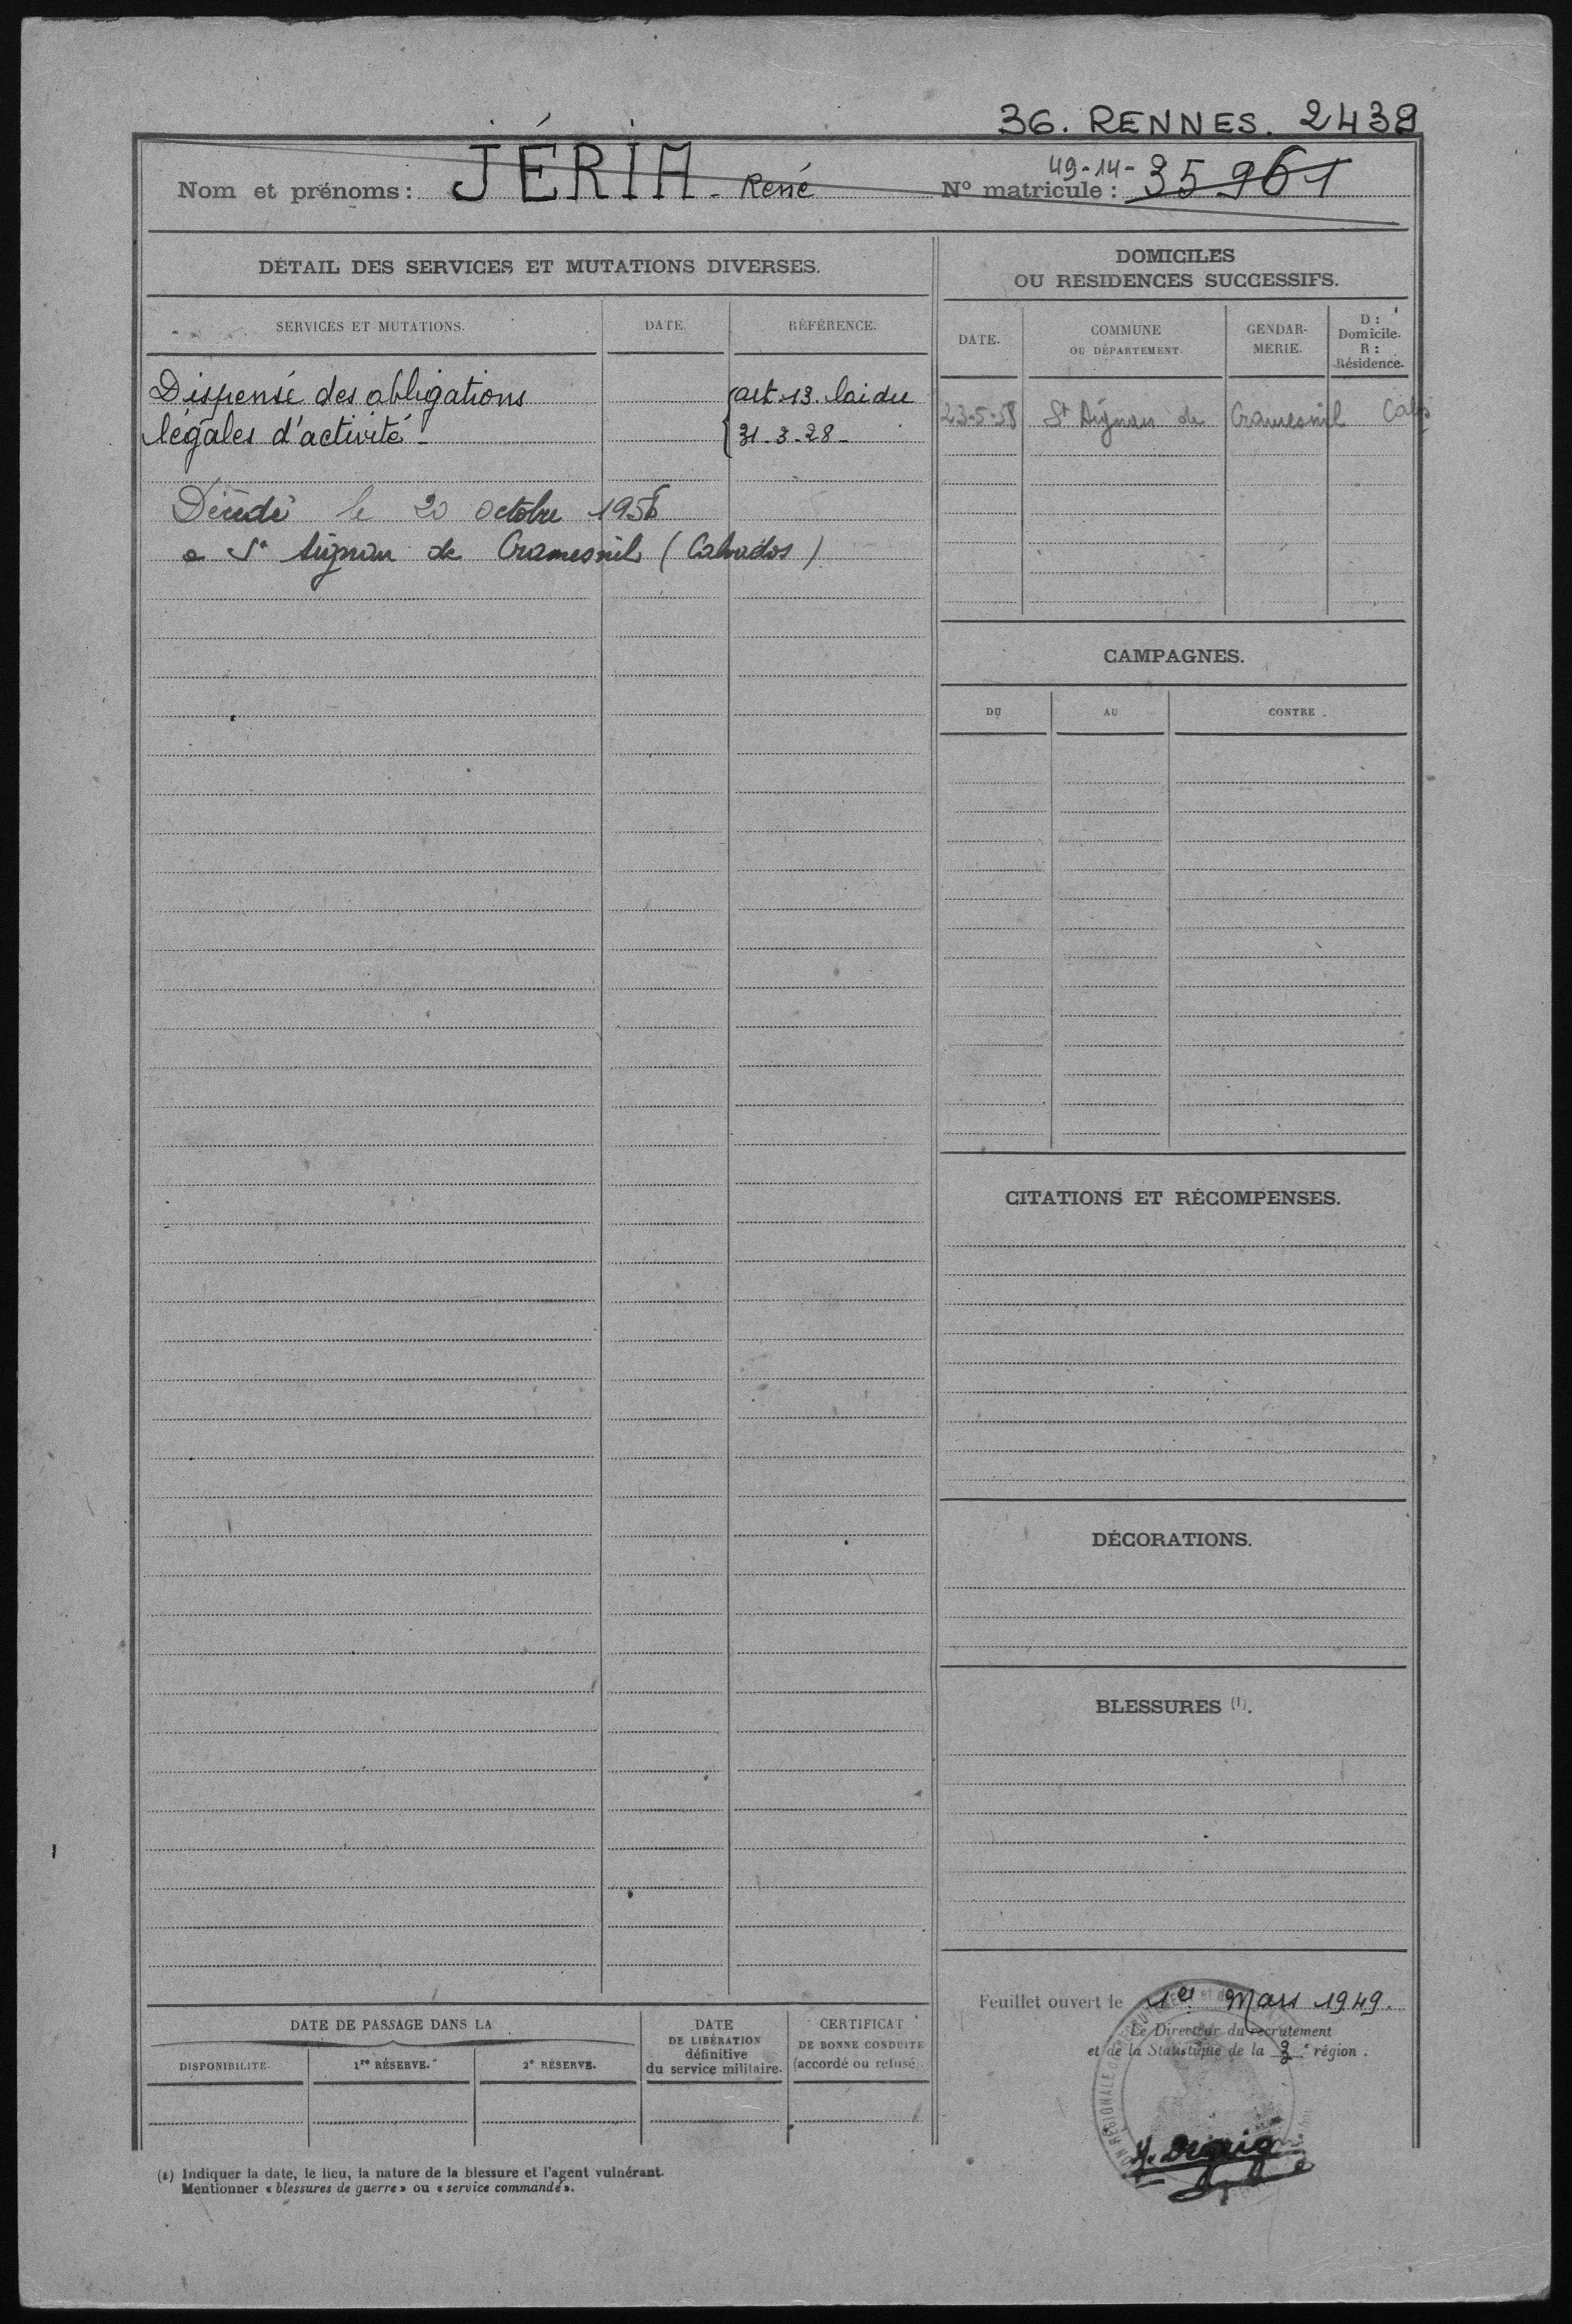 36. RENNES. 2439
Nom et prénoms : JÉRIA - René
49-14-
N° matricule : 35 961
DÉTAIL DES SERVICES ET MUTATIONS DIVERSES.
SERVICES ET MUTATIONS. DATE. RÉFÉRENCE.
Dispensé des obligations art. 13. loi du
légales d'activité - 31-3-28-
Décédé le 20 octobre 1956
a St Aignan de Cramesnil (Calvados)
DOMICILES
OU RÉSIDENCES SUCCESSIFS.
DATE. COMMUNE
OU DÉPARTEMENT.
GENDAR-
MERIE.
D :
Domicile.
R :
Résidence.
23-5-58 St Aignan de Cramesnil
CAMPAGNES.
DU AU CONTRE
CITATIONS ET RÉCOMPENSES.
DÉCORATIONS.
BLESSURES (1).
DATE DE PASSAGE DANS LA
DISPONIBILITÉ. 1re RÉSERVE. 2e RÉSERVE.
DATE
DE LIBÉRATION
définitive
du service militaire.
CERTIFICAT
DE BONNE CONDUITE
(accordé ou refusé).
Feuillet ouvert le 1er Mars 1949.
Le Directeur du recrutement
et de la Statistique de la 3e région.
(1) Indiquer la date, le lieu, la nature de la blessure et l'agent vulnérant.
Mentionner « blessures de guerre » ou « service commandé ».